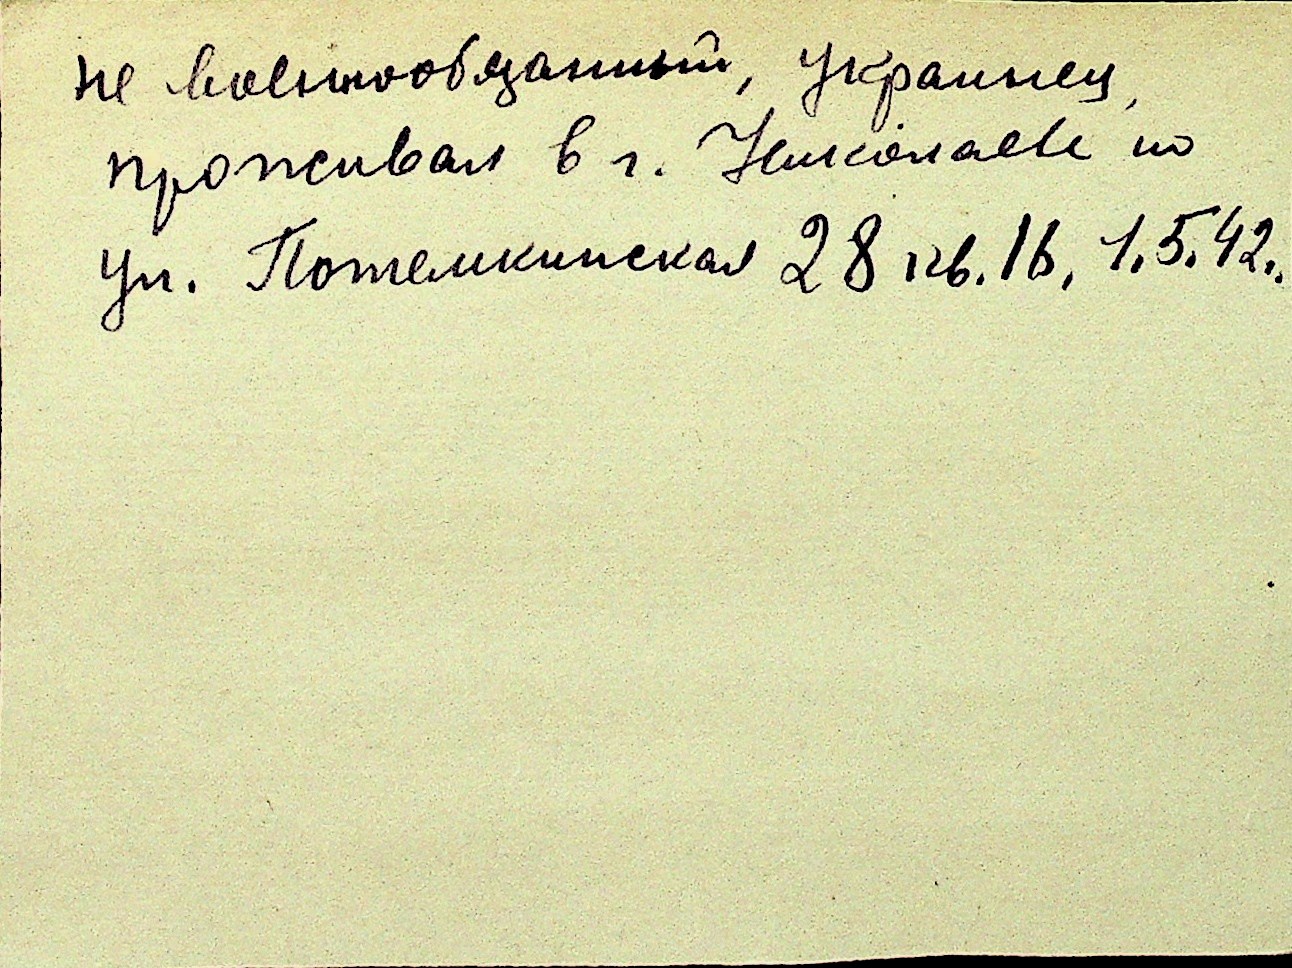 не военнообязанный, украинец,
проживал в г. Николаеве по
ул. Потемкинская 28 кв. 16, 1.5.42..